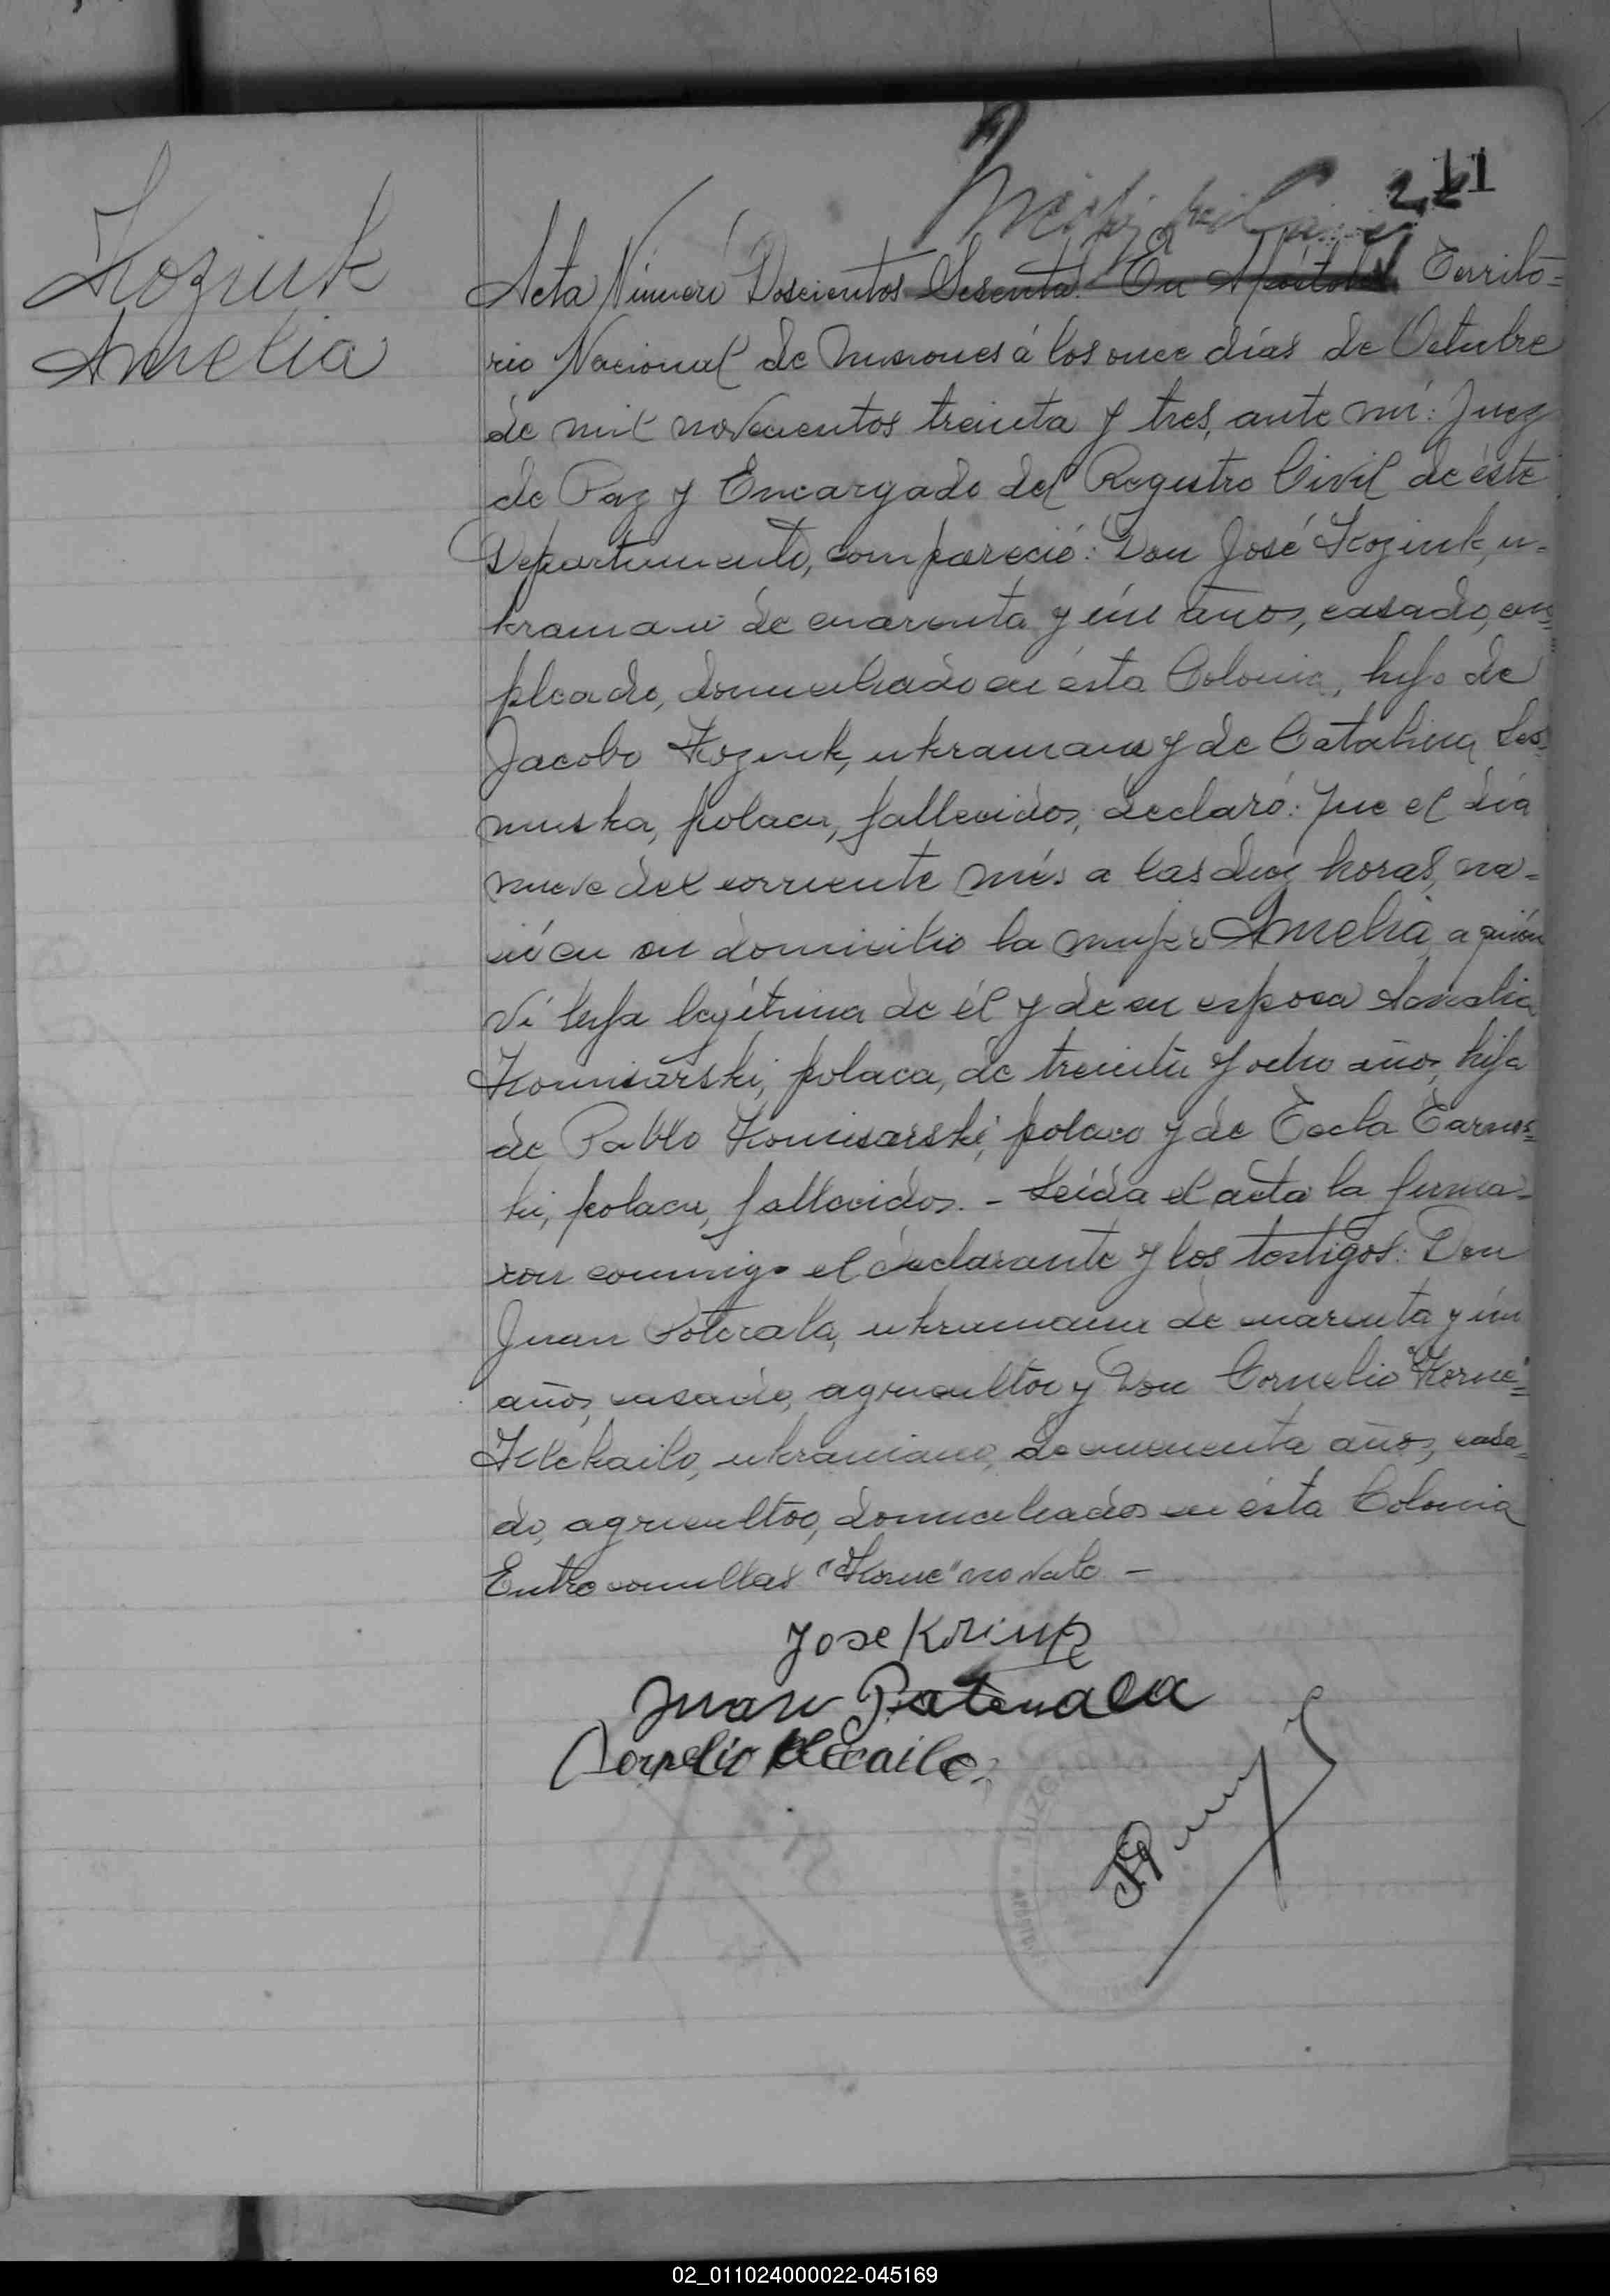 211
Koziuk
Amelia
Acta Número Doscientos Sesenta. En Apóstoles Territo=
rio Nacional de Misiones á los once días de Octubre
de mil novecientos treinta y tres, ante mí: Juez
de Paz y Encargado del Registro Civil de éste
Departamento, compareció: Don José Koziuk, u-
kraniano de cuarenta y ún años, casado, em=
pleado, domiciliado en ésta Colonia, hijo de
Jacobo Koziuk, ukraniano y de Catalina
polaca, fallecidos, declaró: Que el día
nueve del corriente més a las diez horas, na-
ció en su domicilio la mujer Amelia, a quién
ví hija legítima de él y de su esposa Amalia
Komisarski, polaca, de treinta y ocho años, hija
de Pablo Komisarski, polaco y de Tecla Tarnos=
ki, polaca, fallecidos. - Leída el acta la firma-
ron conmigo el declarante y los testigos: Don
Juan Poterala, ukraniano de cuarenta y ún
años, casado, agricultor y Don Cornelio "Korne"=
Klekailo, ukraniano, de cincuenta años, casa-
do, agricultor, domiciliados en ésta Colonia
Entre comillas "Korne" no vale -
Jose Koziuk
Juan Poterala
Cornelio Klekailo
JUZGA
02_011024000022-045169